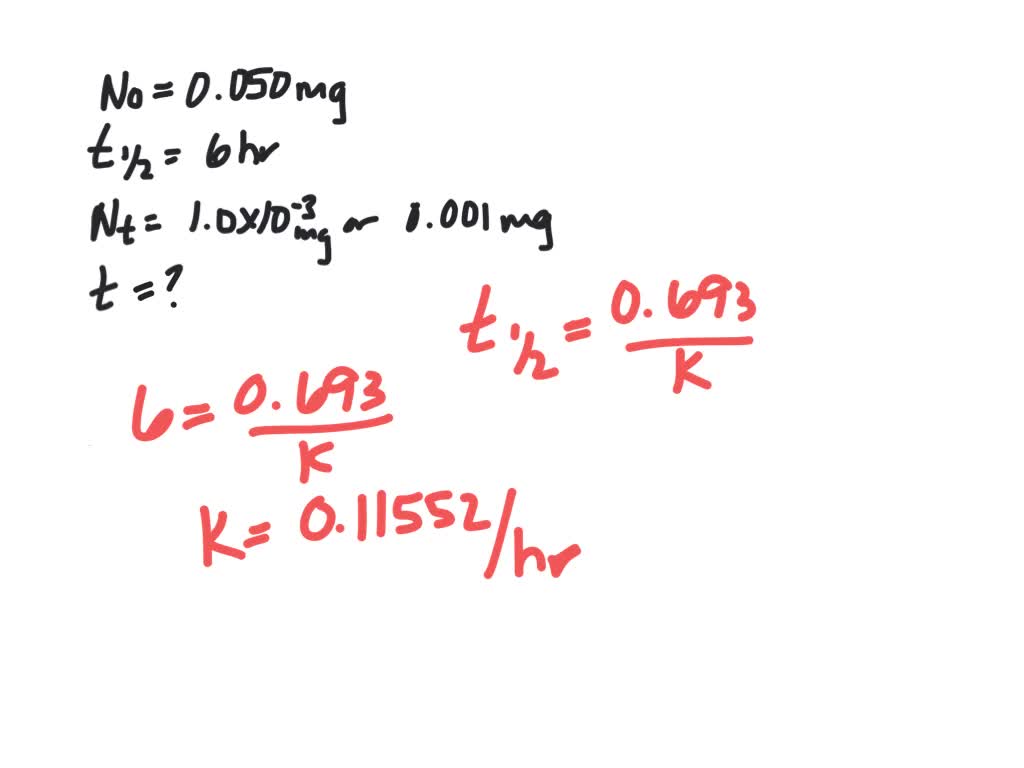 N₀ = 0.050 mg
t 1/2 = 6 hr
Nt = 1.0x10⁻³ mg or 0.001 mg
t = ?
t 1/2 = 0.693 / K
6 = 0.693 / K
K = 0.11552 / hr